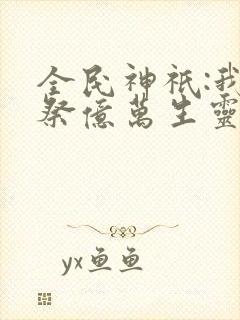 全民神祇:我
祭億萬生靈
yx鱼鱼